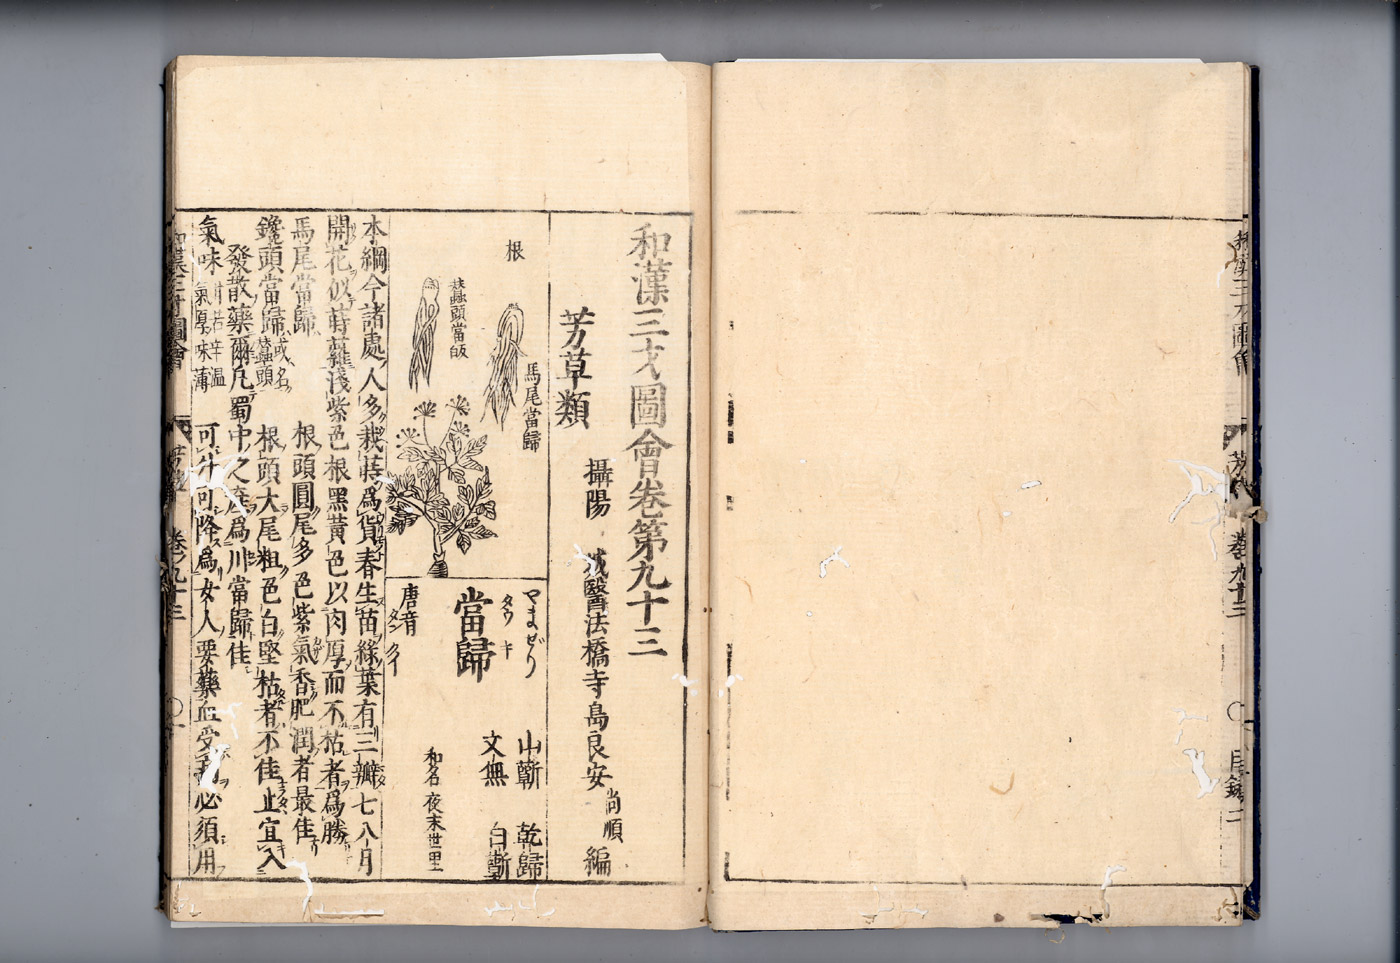 目録二
和漢三才圖會卷第九十三
芳草類
攝陽 城醫法橋寺島良安尚順編
根
馬尾當歸
蠶頭當皈
やまぜり
タウ キ
當歸
唐音
タン クイ
山蘄 乾歸
文無 白蘄
和名 夜末世里
本綱今諸處人多栽蒔爲貨春生苗綠葉有三瓣七八月
開花似蒔蘿淺紫色根黑黃色以肉厚而不枯者爲勝
馬尾當歸 根頭圓尾多色紫氣香肥潤者最佳
鑱頭當歸或名蠶頭 根頭大尾粗色白堅枯者不佳止宜入
發散藥爾凡蜀中之産爲川當歸佳
氣味甘苦辛溫氣厚味薄 可升可降爲女人要藥血受病必須用